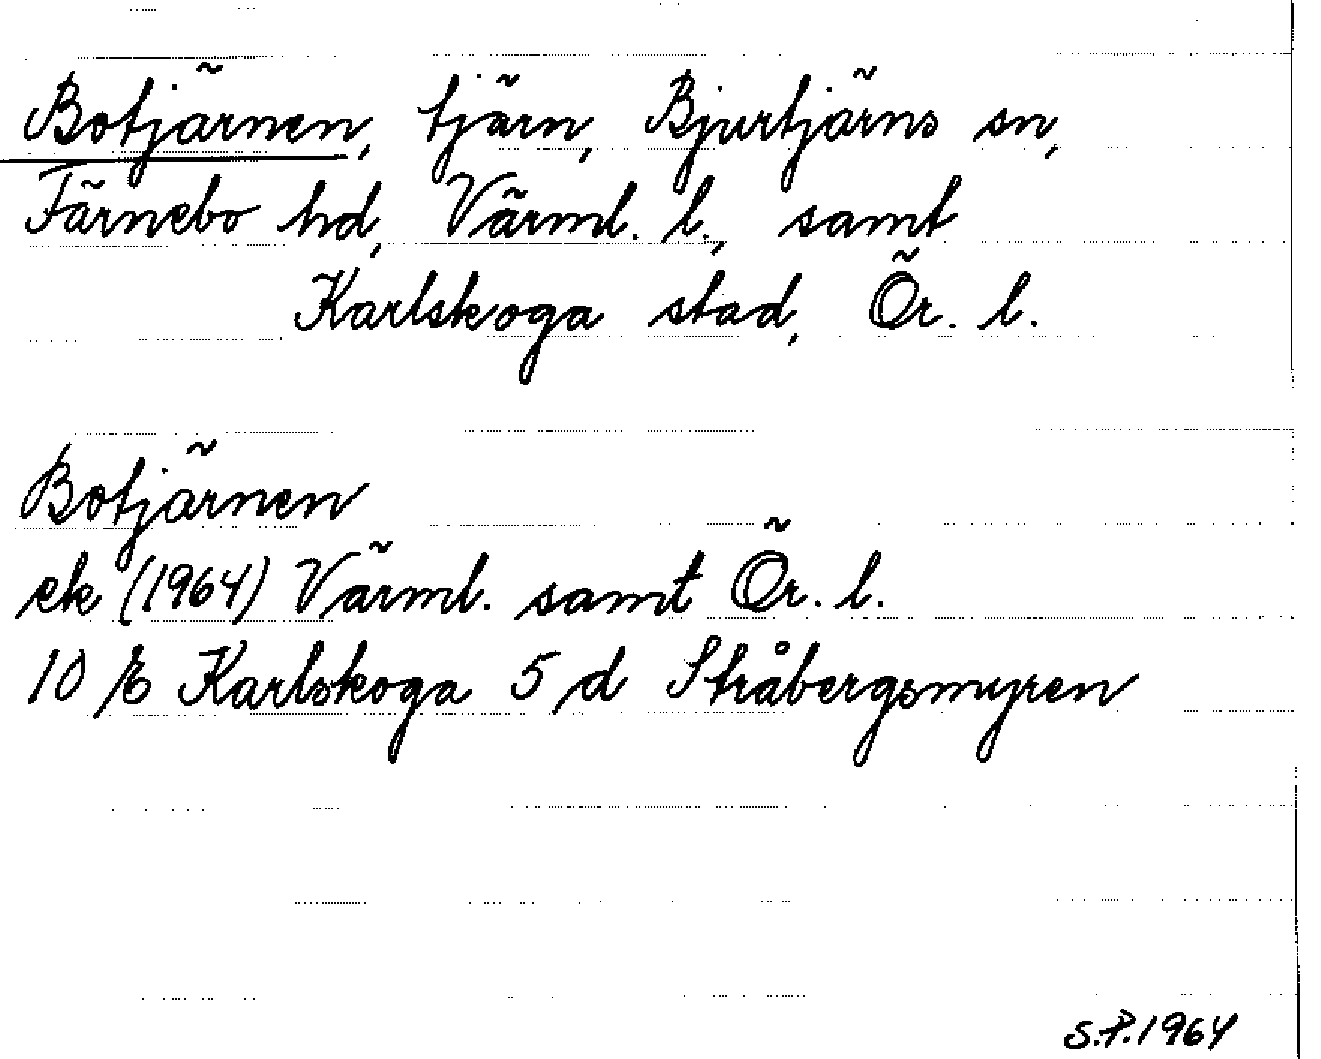 Botjärnen, tjärn, Bjurtjärns sn,
Färnebo hd, Värml. l., samt
Karlskoga stad, Ör. l.
Botjärnen
ek (1964) Värml. samt Ör. l.
10 E Karlskoga 5 d Stråbergsmyren
S.P. 1964